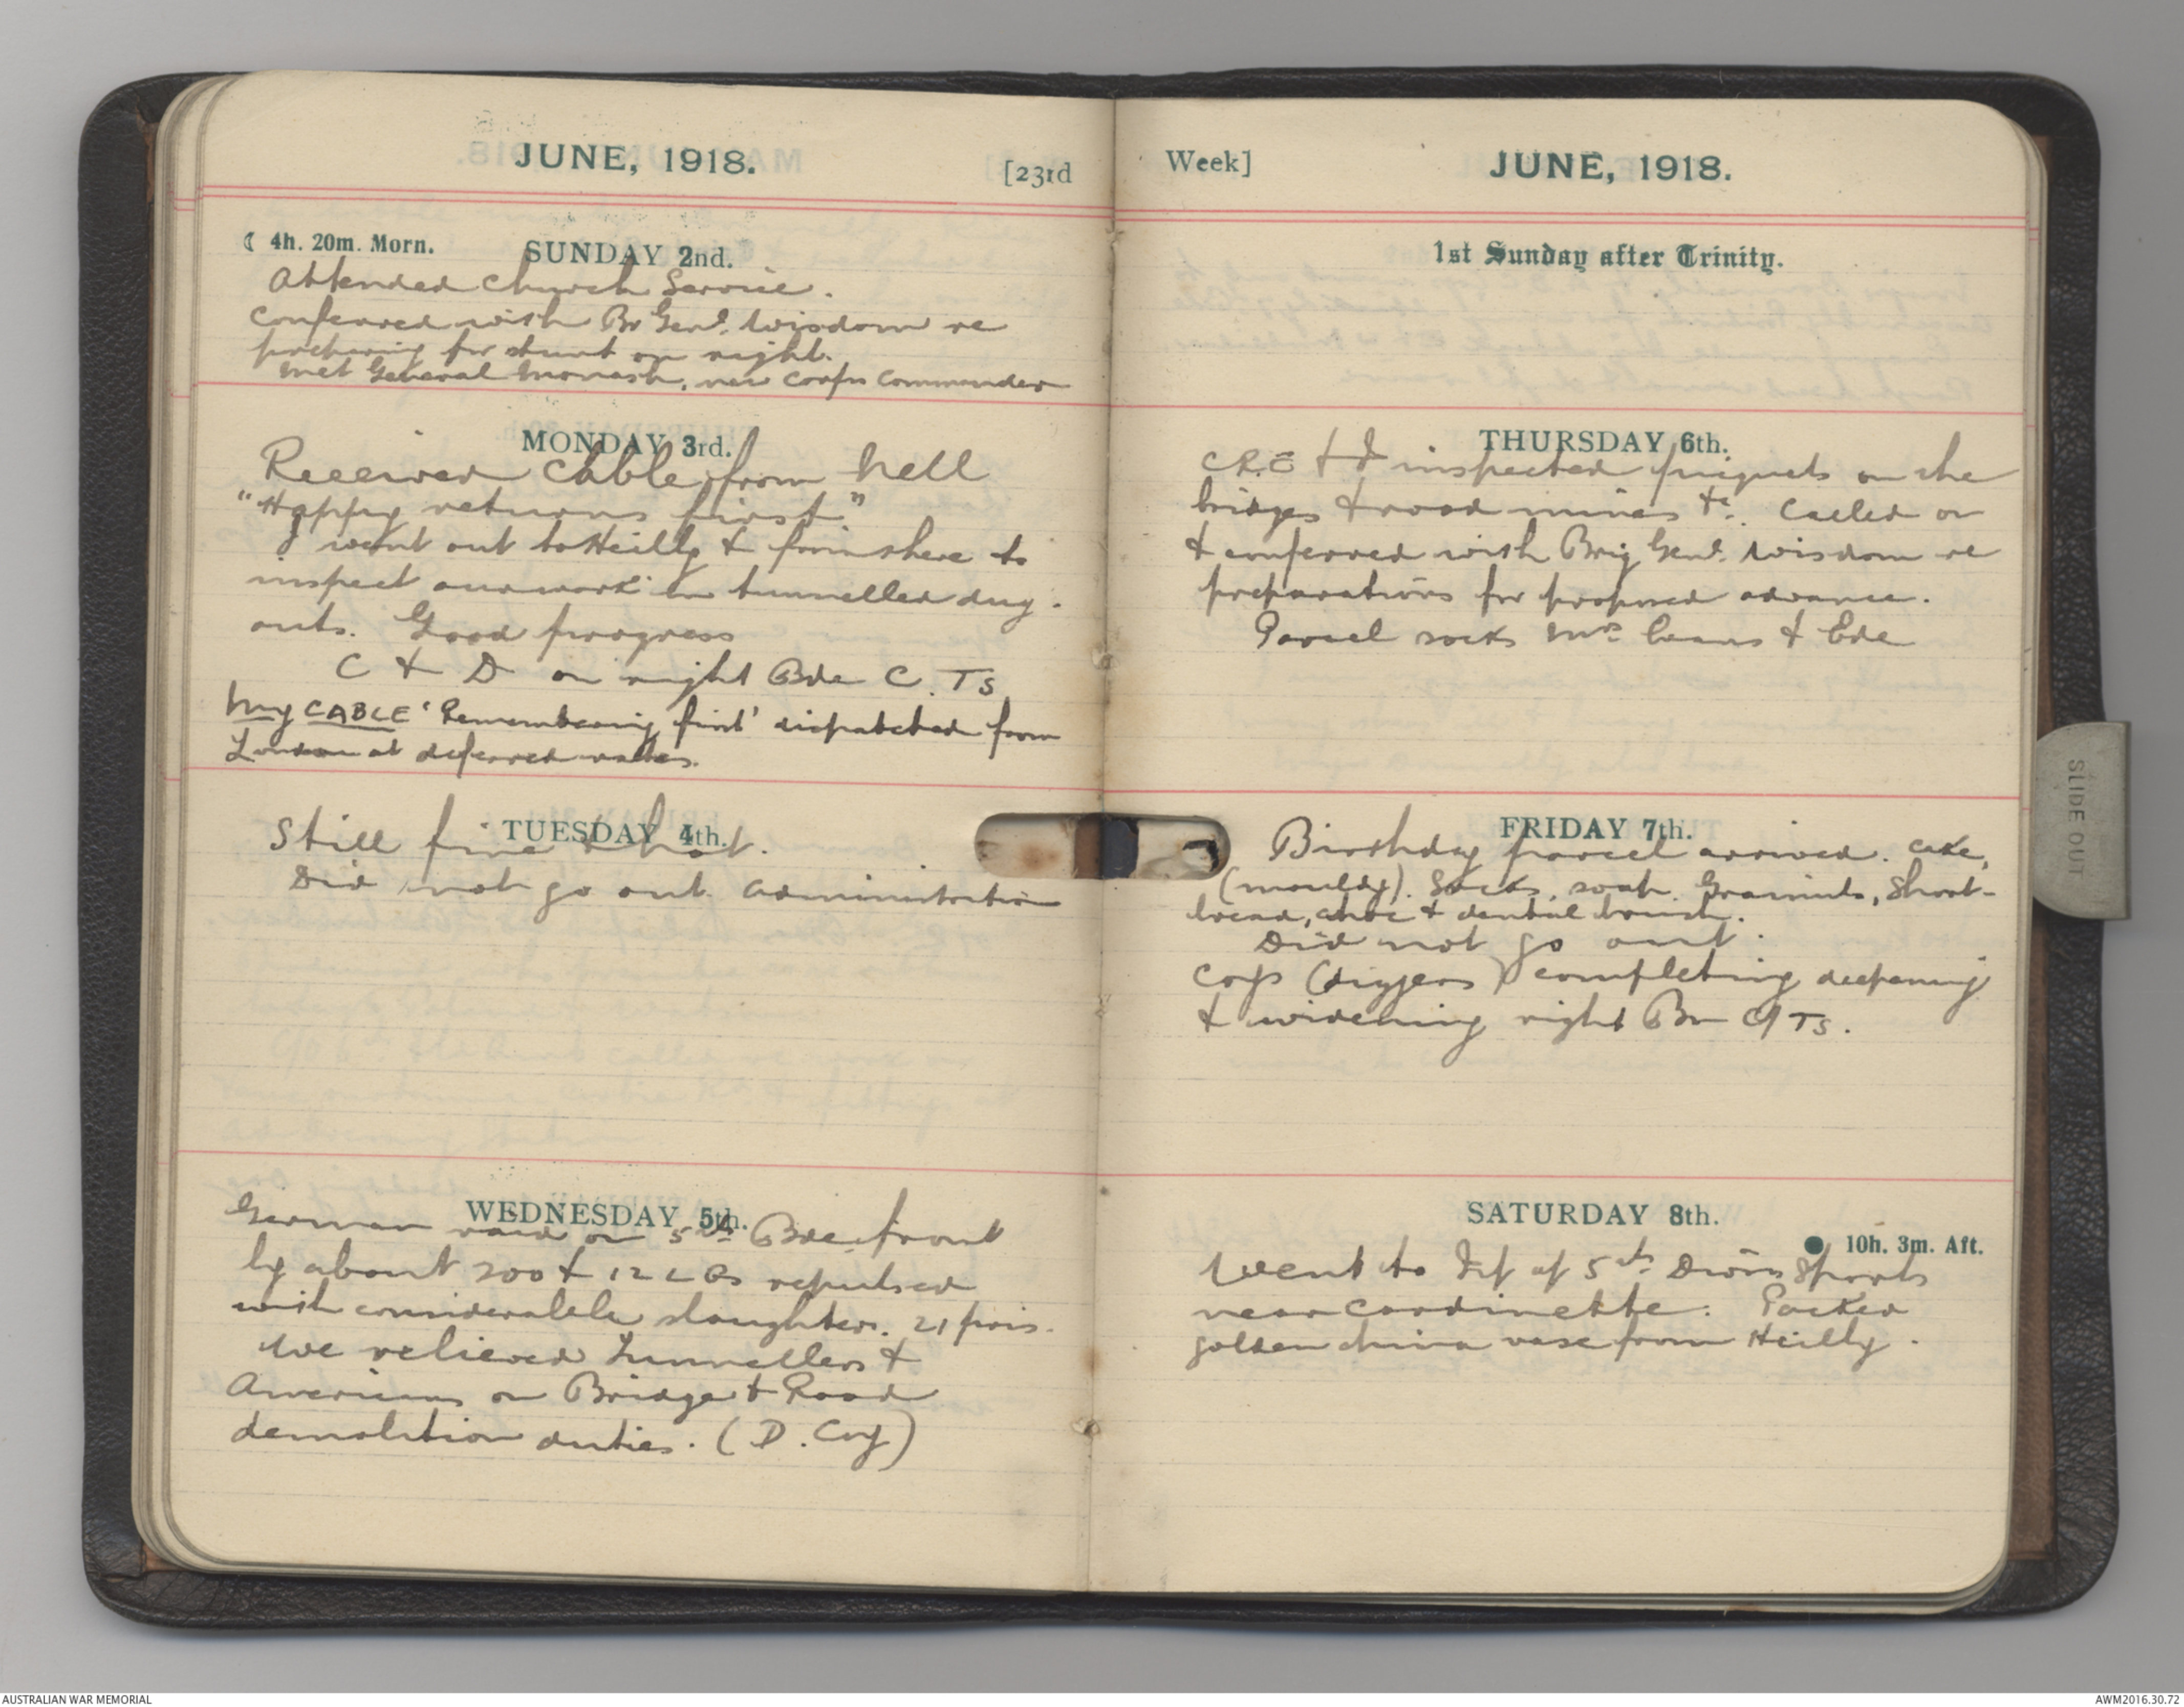 JUNE, 1918.
[23rd
☾ 4h. 20m. Morn.
SUNDAY 2nd.
Attended Church Service.
Conferred with Br Genl. Wisdom re
preparing for stunt on right.
Met General Monash, new Corps Commander
MONDAY 3rd.
Received Cable from Nell
"Happy returns first"
I went out to Heilly & from there to
inspect our work in tunnelled dug-
outs. Good progress
C & D on right Bde C.Ts
My CABLE 'Remembering first' dispatched from
London at deferred rates.
TUESDAY 4th.
Still fine & hot.
Did not go out. Administration
WEDNESDAY 5th.
German raid on 5th Bde front
by about 200 & 12 L Gs repulsed
with considerable slaughter. 21 pris.
We relieved Tunnellers &
Americans on Bridge & Road
demolition duties. (D. Coy)
Week]
JUNE, 1918.
1st Sunday after Trinity.
THURSDAY 6th.
C.R.E & I inspected piquets on the
bridges & road mines &c. Called on
& conferred with Brig Genl. Wisdom re
preparations for proposed advance.
Parcel socks Mrs Evans & Ede
FRIDAY 7th.
Birthday parcel arrived. Cake,
(mouldy). Socks, soap. Granuts, Short-
bread, choc & dental brush.
Did not go out.
Coys (diggers) completing deepening
& widening right Bn C/Ts.
SATURDAY 8th.
● 10h. 3m. Aft.
Went to of 5th Divn Sports
near Cardinette. Packed
golden china vase from Heilly.
SLIDE OUT
AUSTRALIAN WAR MEMORIAL
AWM2016.30.72